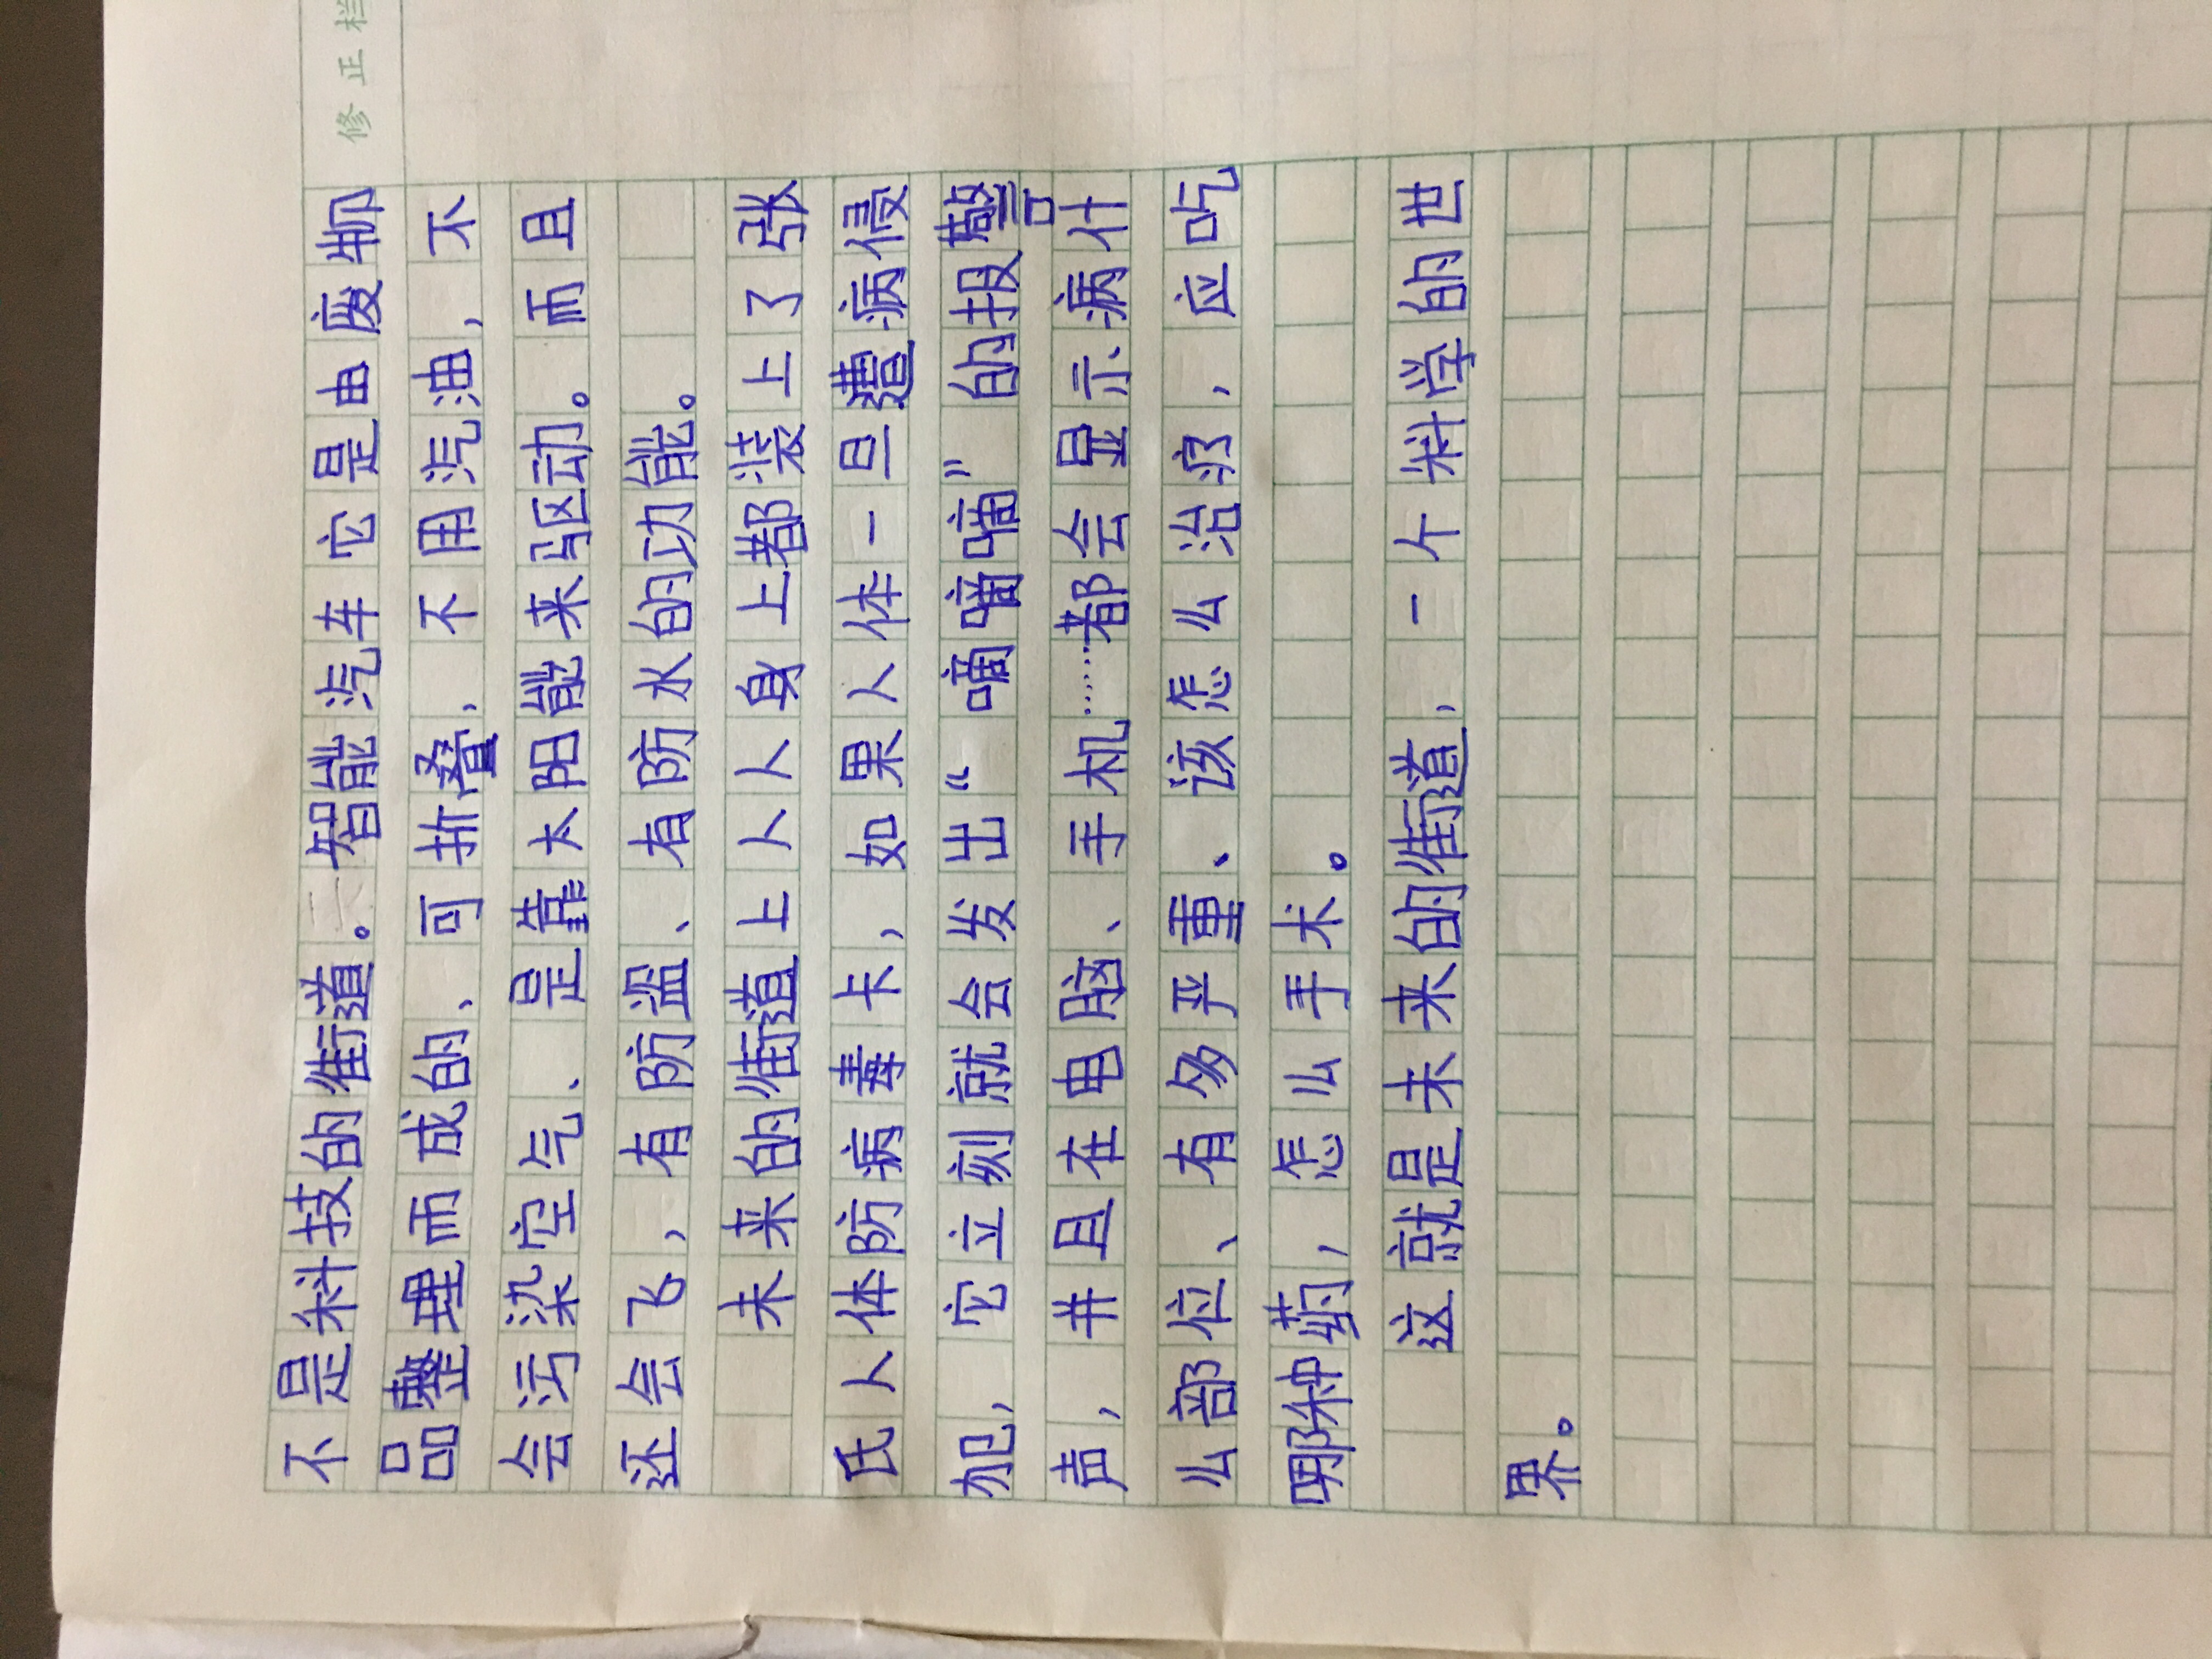 修正栏
不是科技的街道。二智能汽车它是由废物
品整理而成的、可折叠,不用汽油,不
会污染空气、是靠太阳能来驱动。而且
还会飞,有防盗、有防水的功能。
未来的街道上人人身上都装上了张
氏人体防病毒卡,如果人体一旦遭病侵
犯,它立刻就会发出“嘀嘀嘀”的报警
声,并且在电脑、手机……都会显示病什
么部位、有多严重、该怎么治疗,应吃
哪种药,怎么手术。
这就是未来的街道,一个科学的世
界。